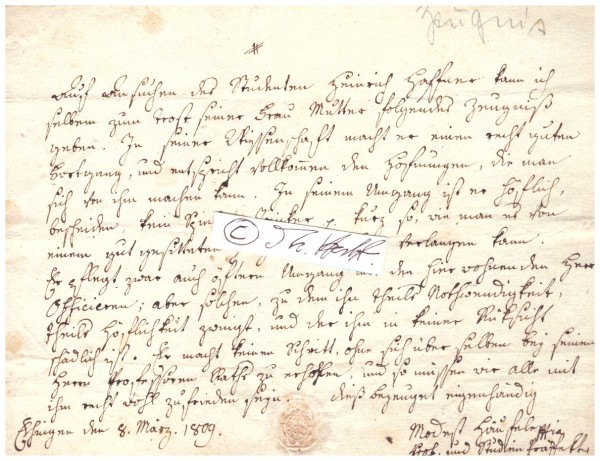 Zeugnis
Auf Ansuchen des Studenten Heinrich Haffner kann ich
selbem zum Trost seiner Frau Mutter folgendes Zeugniß
geben. In seiner Wissenschaft macht er einen recht guten
Fortgang, und entspricht vollkommen den Hofnungen, die man
sich von ihm machen kann. In seinem Umgang ist er höflich,
bescheiden, kein kurz so, wie man es von
einem gut gesitteten verlangen kann.
Er pflegt zwar auch öftern Umgang mit den hier wohnenden Herr
Officieren; aber solchen, zu dem ihn theils Nothwendigkeit,
theils Höflichkeit zwingt, und der ihm in keiner Rücksicht
schädlich ist. Er macht keinen Schritt, ohne sich über selben bey seinen
Herrn Professoren Raths zu erholen, und so müssen wir alle mit
ihm recht wohl zufrieden seyn. dieß bezeuget eigenhändig
Ehingen den 8. März. 1809.
Modest Häufele
und Studien Präfekt
©